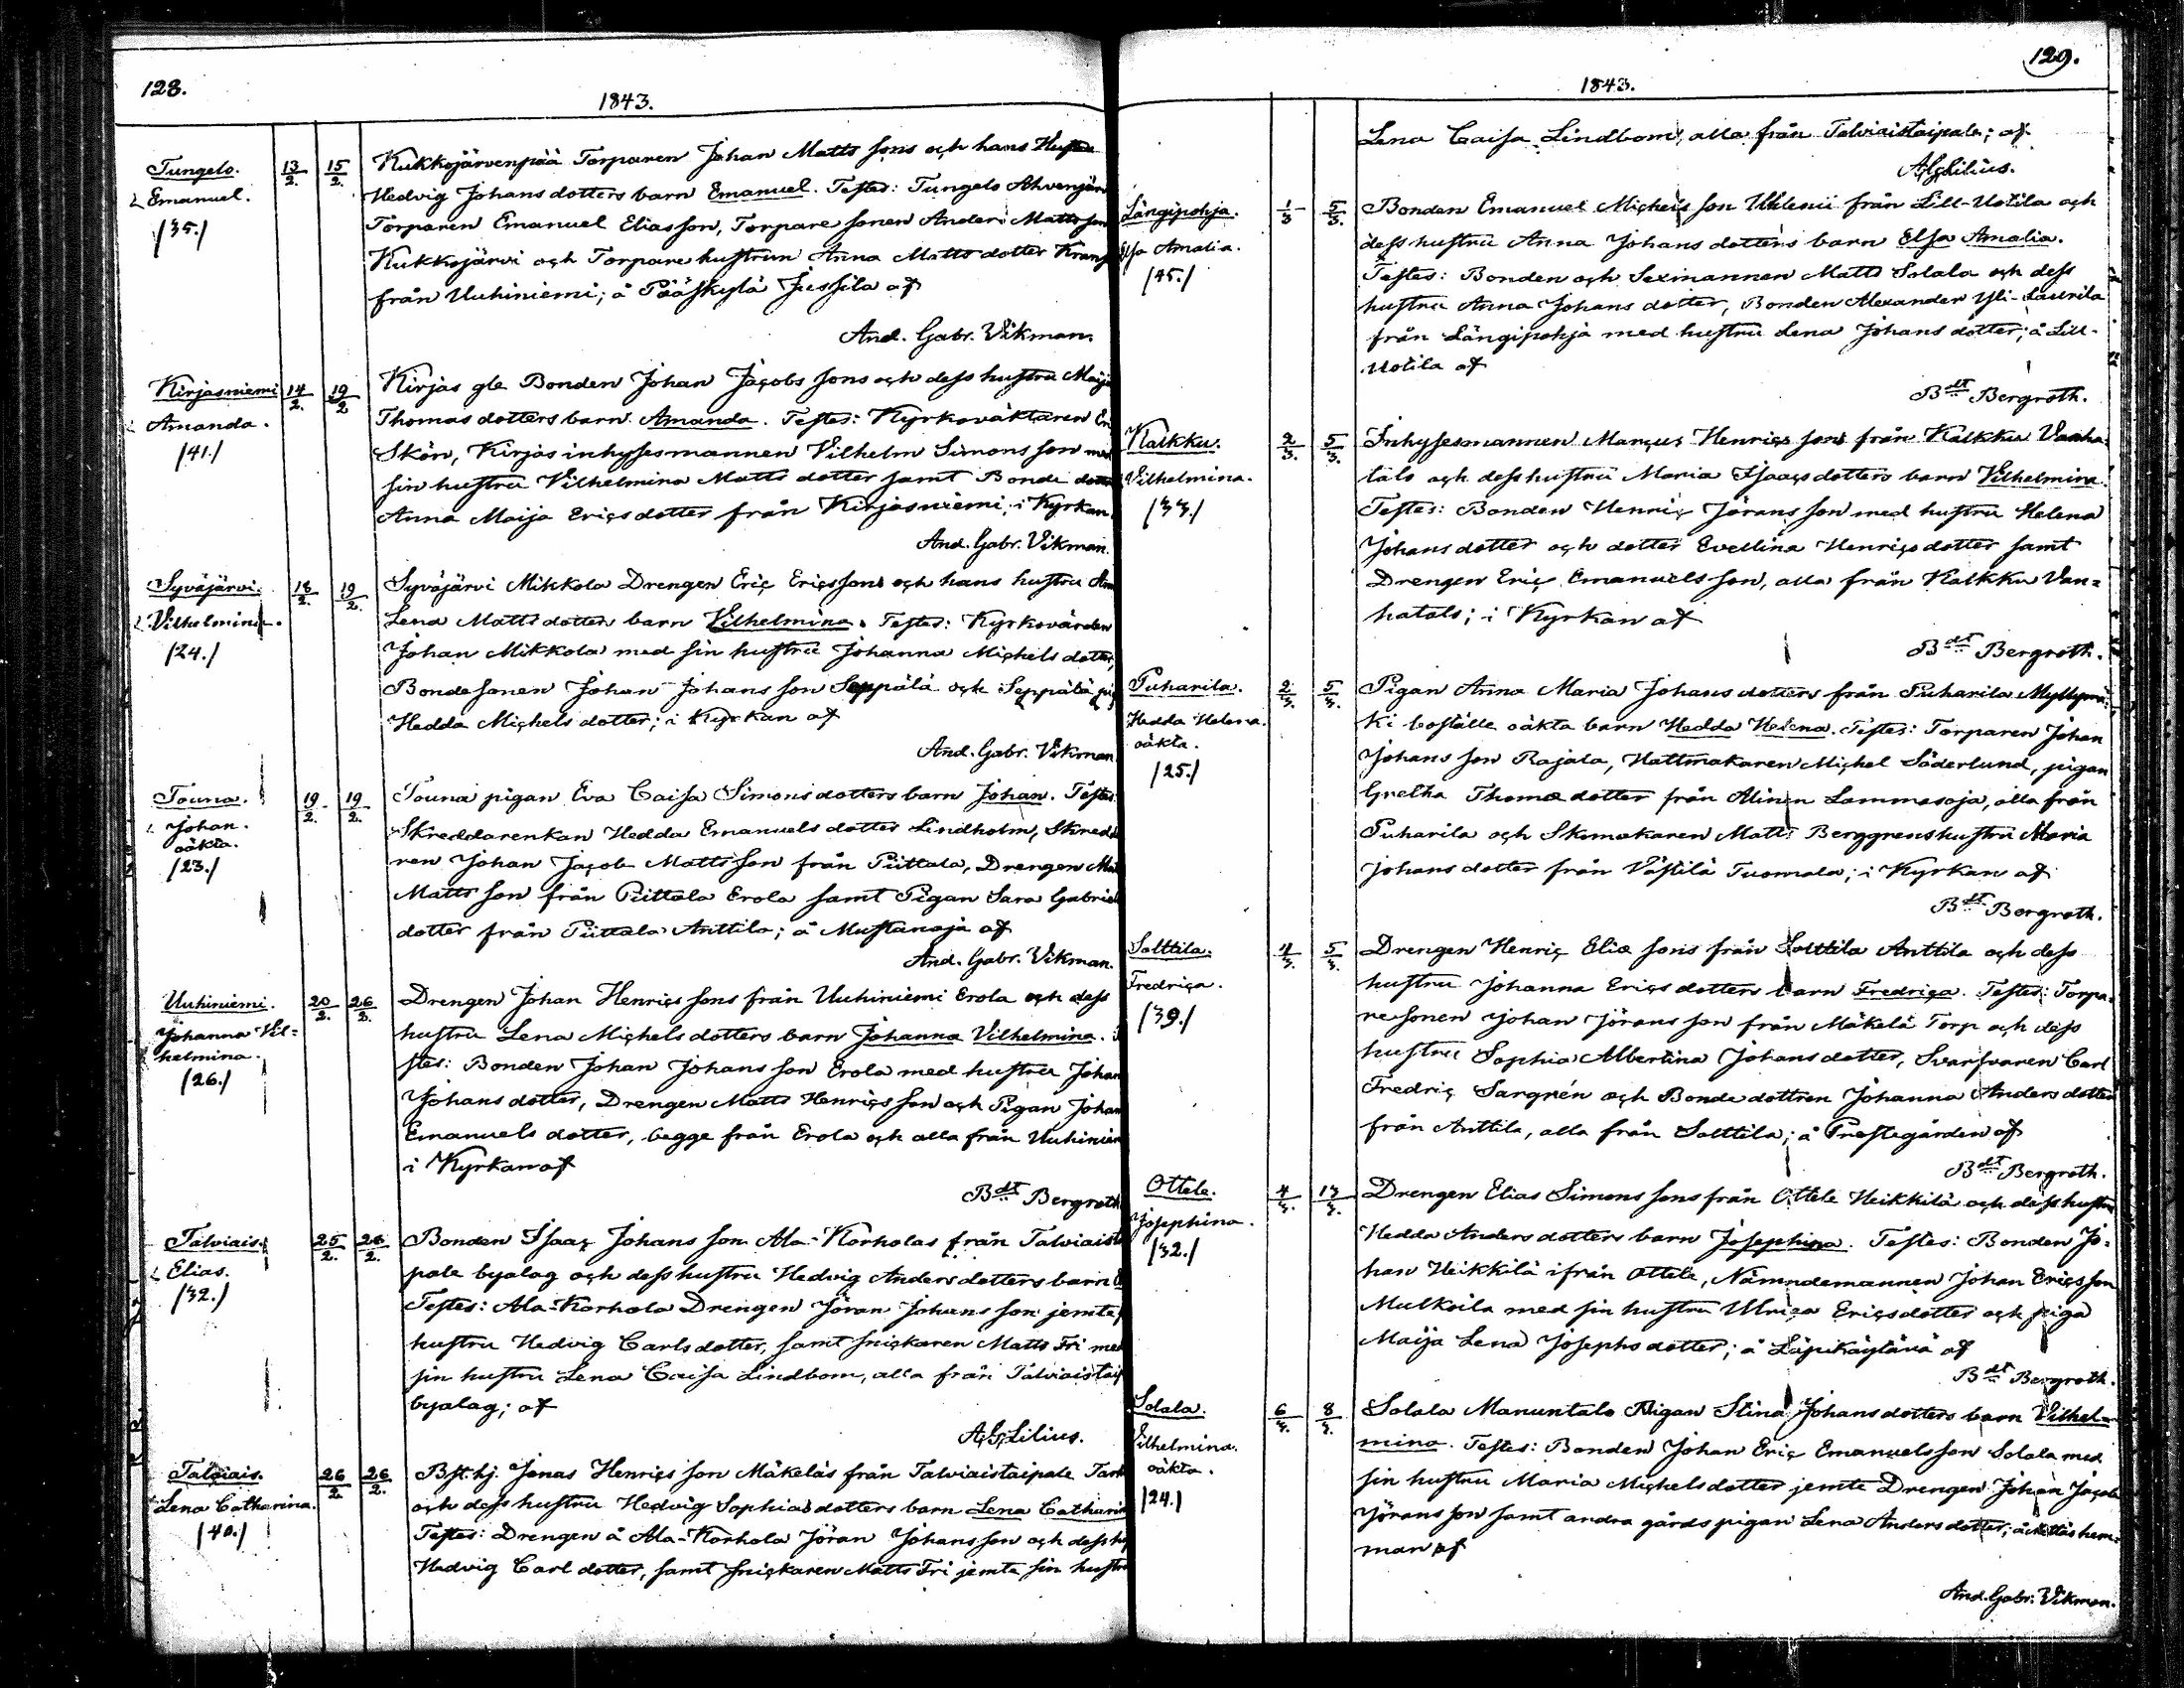 128.
1843.
Tungelo.
Emanuel.
/35./
13/2.
15/2.
Kukkojärvenpää Torparen Johan Matts sons och hans Hustru
Hedvig Johans dotters barn Emanuel. Testes: Tungelo Ahvenjärvi
Torparen Emanuel Elias son, Torpare sonen Anders Matts son
Kukkojärvi och Torpare hustrun Anna Matts dotter
från Uuhiniemi; å Pääskylä Jussila af
And. Gabr. Vikman.
Kirjasniemi
Amanda.
/41./
14/2.
19/2
Kirjas gle Bonden Johan Jacobs sons och dess hustru Maija
Thomas dotters barn Amanda. Testes: Kyrkoväktaren
Skön, Kirjas inhysesmannen Vilhelm Simons son med
sin hustru Vilhelmina Matts dotter samt Bonde dotter
Anna Maija Erics dotter från Kirjasniemi; i Kyrkan
And. Gabr. Vikman.
Syväjärvi.
Vilhelmina.
/24./
18/2.
19/2.
Syväjärvi Mikkola Drengen Eric Erics sons och hans hustru
Lena Matts dotters barn Vilhelmina. Testes: Kyrkovärden
Johan Mikkola med sin hustru Johanna Michels dotter,
Bondesonen Johan Johans son Seppälä och Seppälä
Hedda Michels dotter; i Kyrkan af
And. Gabr. Vikman
Touna.
Johan.
oäkta.
/23./
19/2.
19/2.
Touna pigan Eva Caisa Simons dotters barn Johan. Testes:
Skreddarenkan Hedda Emanuels dotter Lindholm,
ren Johan Jacob Matts son från Piittala, Drengen
Matts son från Piittala Erola samt Pigan Sara Gabriels
dotter från Piittala Anttila; å Mustanoja af
And. Gabr. Vikman.
Uuhiniemi.
Johanna Vil=
helmina.
/26./
20/2.
26/2.
Drengen Johan Henrics sons från Uuhiniemi Erola och dess
hustru Lena Michels dotters barn Johanna Vilhelmina.
stes: Bonden Johan Johans son Erola med hustru
Johans dotter, Drengen Matts Henrics son och Pigan
Emanuels dotter, begge från Erola och alla från Uuhiniemi
i Kyrkan af
Bdt Bergroth
Talviais.
Elias.
/32./
25/2.
26/2.
Bonden Isaac Johans son Ala-Korholas från Talviaistai
pale byalag och dess hustru Hedvig Anders dotters barn
Testes: Ala-Korhola Drengen Jöran Johans son jemte
hustru Hedvig Carls dotter, samt snickaren Matts Fri med
sin hustru Lena Caisa Lindbom, alla från Talviaistai
byalag; af
A.G. Lilius.
Talviais.
Lena Catharina.
/40./
26/2.
26/2.
Bst.hj. Jonas Henrics son Mäkeläs från Talviaistaipale
och dess hustru Hedvig Sophias dotters barn Lena Catharina
Testes: Drengen å Ala-Korhola Jöran Johans son och dess
Hedvig Carl dotter, samt snickaren Matts Fri jemte sin hustru
129.
1843.
Lena Caisa Lindbom, alla från Talviaistaipale; af
A.G. Lilius.
Längipohja.
Elsa Amalia.
/45./
1/3
5/3.
Bonden Emanuel Michels son Uhlenii från Lill-Uotila och
dess hustru Anna Johans dotters barn Elsa Amalia.
Testes: Bonden och Sexmannen Matts Solala och dess
hustru Anna Johans dotter, Bonden Alexander Yli-Laurila
från Längipohja med hustru Lena Johans dotter; å Lill-
Uotila af
Bdt Bergroth.
Kalkku.
Vilhelmina.
/33./
2/3.
5/3.
Inhysesmannen Marcus Henrics sons från Kalkku Vanha-
talo och dess hustru Maria Isaacs dotters barn Vilhelmina.
Testes: Bonden Henric Jörans son med hustru Helena
Johans dotter och dotter Evelina Henrics dotter samt
Drengen Eric Emanuels son, alla från Kalkku Van=
hatalo; i Kyrkan af
Bdt Bergroth.
Puharila.
Hedda Helena.
oäkta.
/25./
2/3.
5/3.
Pigan Anna Maria Johans dotters från Puharila Myllymä=
ki boställe oäkta barn Hedda Helena. Testes: Torparen Johan
Johans son Rajala, Hattmakaren Michel Söderlund, pigan
Gretha Thomæ dotter från Alinen Lammasoja, alla från
Puharila och Skomakaren Matts Berggrens hustru Maria
Johans dotter från Västilä Tuomala; i Kyrkan af
Bdt Bergroth.
Solttila.
Fredrica.
/39./
4/3.
5/3.
Drengen Henric Eliæ sons från Solttila Anttila och dess
hustru Johanna Erics dotters barn Fredrica. Testes: Torpa=
resonen Johan Jörans son från Mäkelä Torp och dess
hustru Sophia Albertina Johans dotter, Svarfvaren Carl
Fredric Sargrén och Bonde dottren Johanna Anders dotter
från Anttila, alla från Solttila; å Prestegården af
Bdt Bergroth.
Ottele.
Josephina.
/32./
4/3.
13/3.
Drengen Elias Simons sons från Ottele Heikkilä och dess hustru
Hedda Anders dotters barn Josephina. Testes: Bonden Jo=
han Heikkilä ifrån Ottele, Nämndemannen Johan Erics son
Mulkoila med sin hustru Ulrica Erics dotter och piga
Maija Lena Josephs dotter; å Läpikäytävä af
Bdt Bergroth.
Solala.
Vilhelmina.
oäkta.
/24./
6/3.
8/3.
Solala Manuntalo Pigan Stina Johans dotters barn Vilhel=
mina. Testes: Bonden Johan Eric Emanuels son Solala med
sin hustru Maria Michels dotter jemte Drengen Johan Jacob
Jörans son samt andra gårds pigan Lena Anders dotter; å hem=
man af
And. Gabr. Vikman.